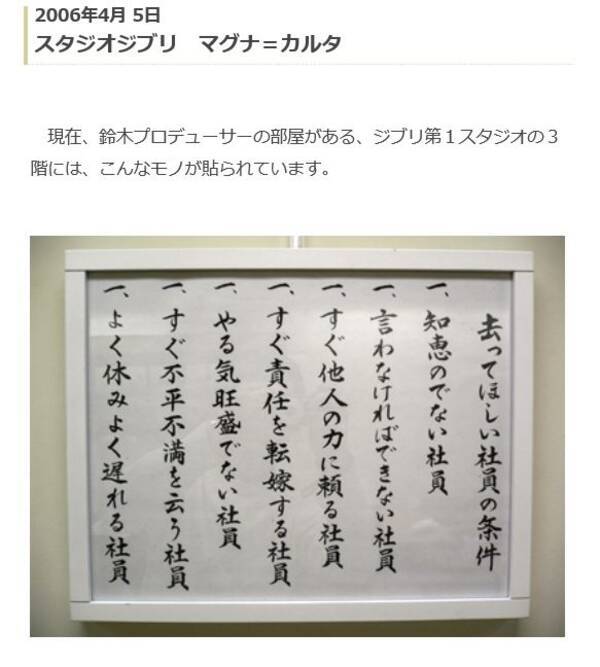 2006年4月 5日
スタジオジブリ　マグナ＝カルタ
現在、鈴木プロデューサーの部屋がある、ジブリ第１スタジオの３
階には、こんなモノが貼られています。
去ってほしい社員の条件
一、知恵のでない社員
一、言わなければできない社員
一、すぐ他人の力に頼る社員
一、すぐ責任を転嫁する社員
一、やる気旺盛でない社員
一、すぐ不平不満を云う社員
一、よく休みよく遅れる社員